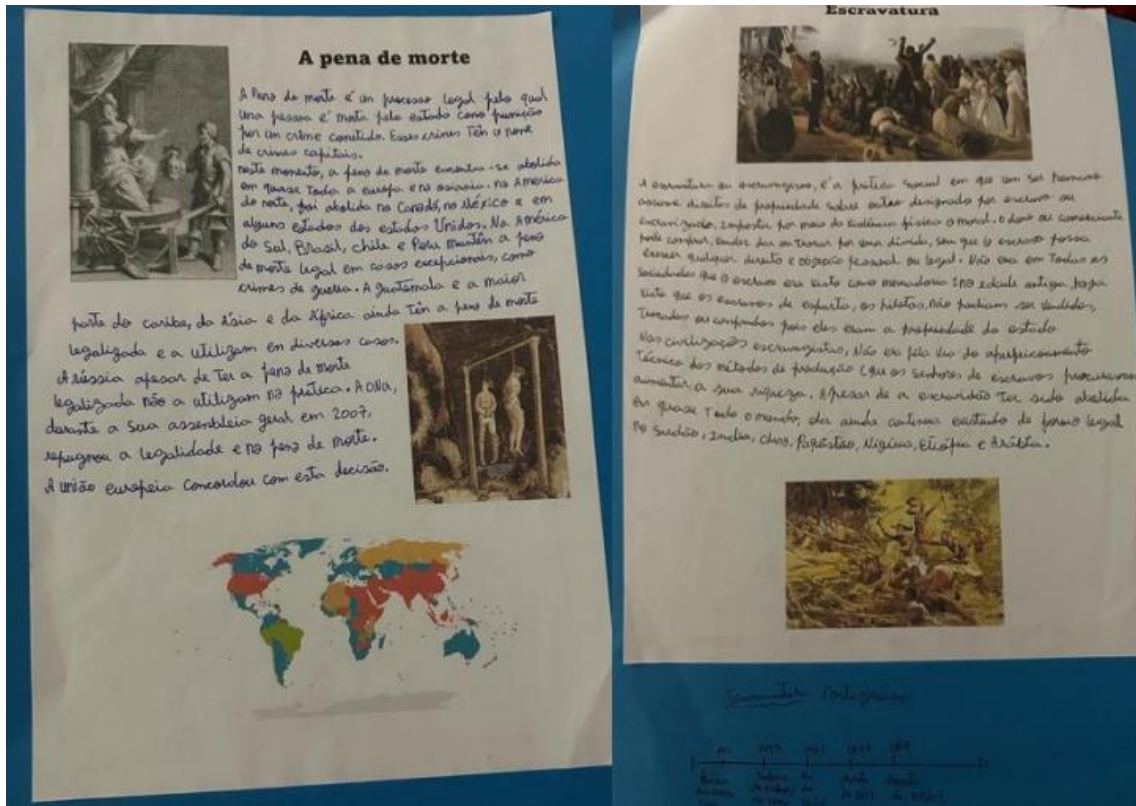 A pena de morte
A Pena de morte é um processo legal pelo qual
uma pessoa é morta pelo estado como punição
por um crime cometido. Esses crimes Têm o nome
de crimes capitais.
neste momento, a pena de morte encontra-se abolida
em quase Toda a europa e na oceania. na América
do norte, foi abolida no Canadá, no México e em
alguns estados dos estados Unidos. Na América
do Sul, Brasil, Chile e Peru mantêm a pena
de morte legal em casos excepcionais, como
crimes de guerra. A guatemala e a maior
parte do caribe, da Ásia e da África ainda Têm a pena de morte
legalizada e a utilizam em diversos casos.
A rússia apesar de Ter a pena de morte
legalizada não a utilizam na prática. A ONU,
durante a sua assembleia geral em 2007,
repugnou a legalidade e na pena de morte.
A união europeia concordou com esta decisão.
Escravatura
A escravatura ou escravagismo, é a prática social em que um ser humano
assume direitos de propriedade sobre outro designado por escravo ou
escravização, Imposta por meio da violência física o moral. o dono ou comerciante
pode comprar, vender dar ou Trocar por uma dívida, sem que o escravo possa
exercer qualquer direito e objeção pessoal ou legal. Não era em Todas as
sociedades que o escravo era visto como mercadoria na idade antiga, haja
visto que os escravos de esparta, os hilotas, não podiam ser vendidos,
Trocados ou comprados pois eles eram a propriedade do estado
Nas civilizações escravagistas, Não era pela via do aperfeiçoamento
Técnico dos métodos de produção que os senhores de escravos procuravam
aumentar a sua riqueza. Apesar de a escravidão Ter sido abolida
em quase Todo o mundo, ela ainda continua existindo de forma legal
no Sudão, India, Paquistão, Nigéria, Etiópia e Arábia.